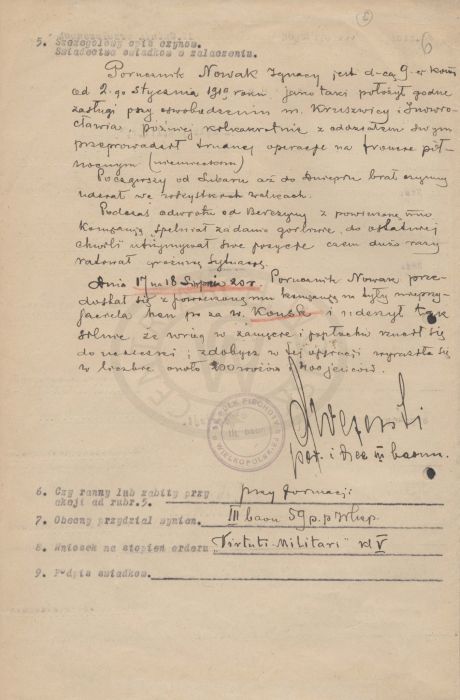 6
5. Szczegółowy opis czynów.
Świadectwo świadków o załączeniu.
Porucznik Nowak Ignacy jest d-cą 9-ej komp
od 2-go stycznia 1919 roku jako taki położył godne
zasługi przy oswobodzeniu m. Kruszwicy i Inowro-
cławia, później kilkakrotnie z oddziałem swym
przeprowadzał trudne operacje na froncie pół-
nocnym
Począwszy od aż do Dniepru brał czynny
udział we wszystkich walkach.
Podczas odwrotu od Berezyny z powierzoną mu
kompanją spełniał zadanie gorliwie, do ostatniej
chwili utrzymywał swe pozycje czem dużo razy
ratował groźną sytuację.
Dnia 17 na 18 Sierpnia 20 r. Porucznik Nowak prze-
dostał się z powierzoną mu kompanją na tyły nieprzy-
jaciela i uderzył tak
silnie że wróg w zamęcie i popłochu rzucił się
do ucieczki; zdobycz w tej operacji wyrażała się
w liczbie około 200 wozów i 400 jeńców.
por. i dca III baonu.
PUŁK PIECHOTY
III. baon
WIELKOPOLSKIEJ
6. Czy ranny lub zabity przy przy formacji
akcji ad rubr.5.
7. Obecny przydział wymien. III baon 59 p.p Wlkp.
8. Wniosek na stopień orderu "Virtuti-Militari" kl V
9. Podpis świadków.